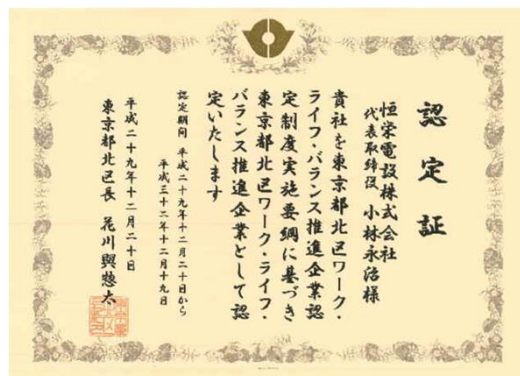 認定証
恒栄電設株式会社
代表取締役 小林永治様
貴社を東京都北区ワーク・
ライフ・バランス推進企業認
定制度実施要綱に基づき
東京都北区ワーク・ライフ・
バランス推進企業として認
定いたします
認定期間 平成二十九年十二月二十日から
平成三十二年十二月十九日
平成二十九年十二月二十日
東京都北区長 花川與惣太